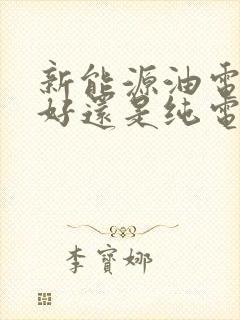 新能源油電
好還是纯電
李寳娜